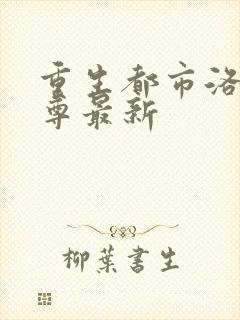 重生都市洛
尊最新
柳葉書生